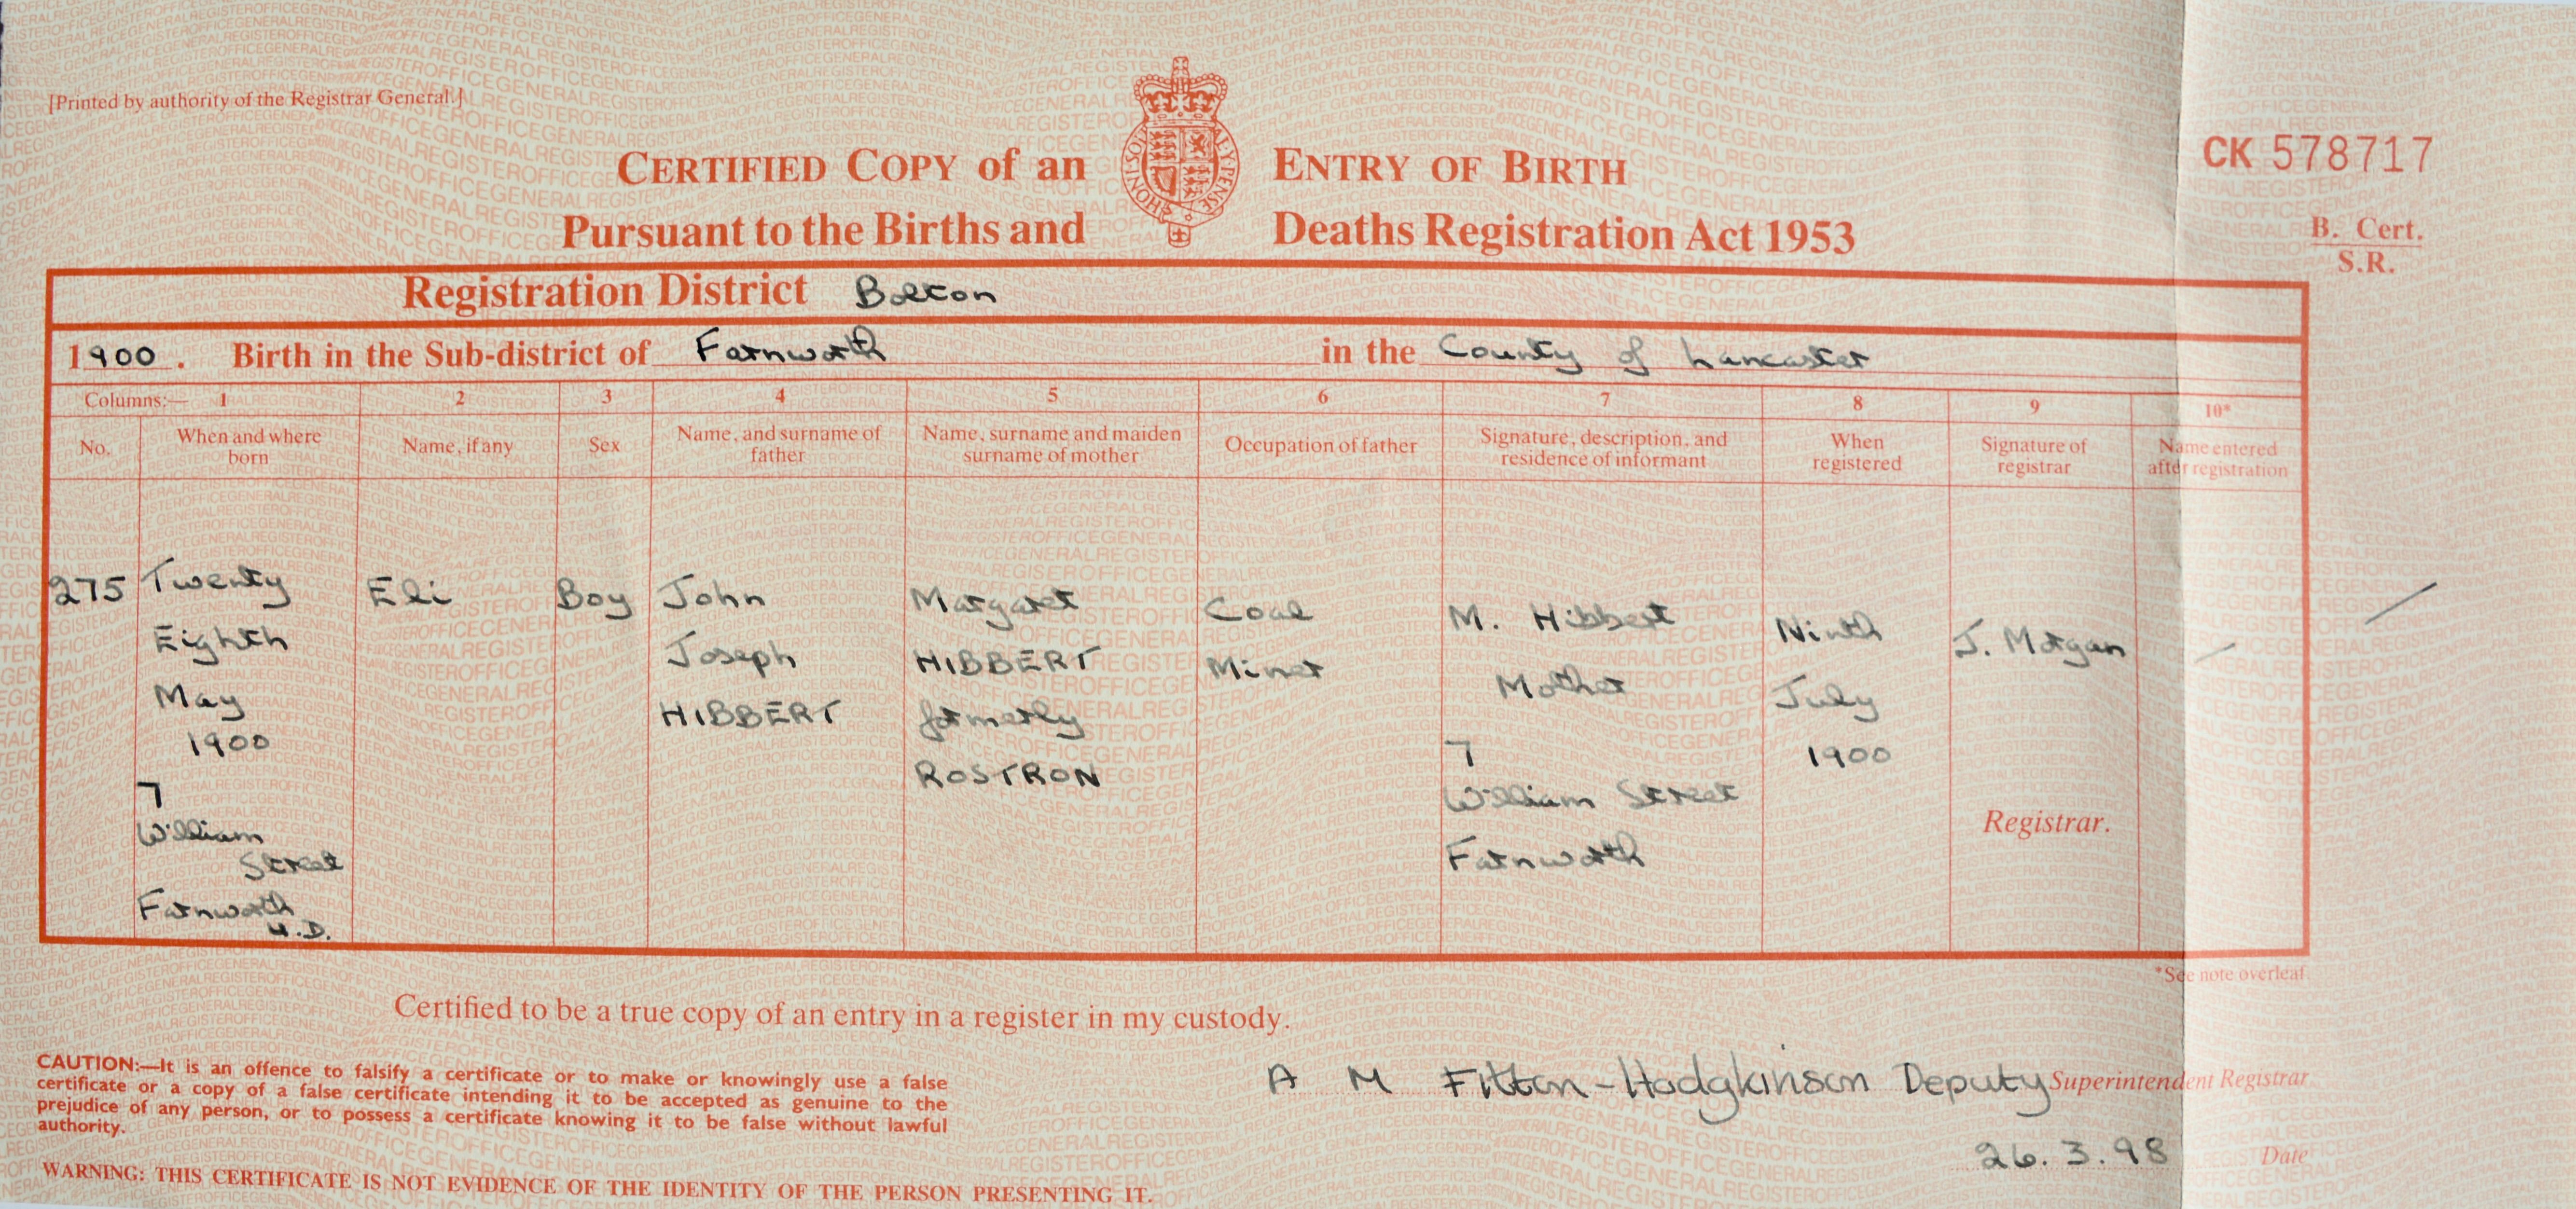 [Printed by authority of the Registrar General.]
CERTIFIED COPY of an ENTRY OF BIRTH
Pursuant to the Births and Deaths Registration Act 1953
HONI·SOI
MAL·Y·PENSE
CK 578717
B. Cert.
S.R.
Registration District Bolton
1900. Birth in the Sub-district of Farnworth in the County of Lancaster
Columns:— 1 2 3 4 5 6 7 8 9 10*
No.
When and where
born
Name, if any
Sex
Name, and surname of
father
Name, surname and maiden
surname of mother
Occupation of father
Signature, description, and
residence of informant
When
registered
Signature of
registrar
Name entered
after registration
275
Twenty
Eighth
May
1900
7
William
Street
Farnworth
U.D.
Eli
Boy
John
Joseph
HIBBERT
Margaret
HIBBERT
formerly
ROSTRON
Coal
Miner
M. Hibbert
Mother
7
William Street
Farnworth
Ninth
July
1900
J. Morgan
Registrar.
*See note overleaf
Certified to be a true copy of an entry in a register in my custody.
CAUTION:—It is an offence to falsify a certificate or to make or knowingly use a false
certificate or a copy of a false certificate intending it to be accepted as genuine to the
prejudice of any person, or to possess a certificate knowing it to be false without lawful
authority.
A M Fitton-Hodgkinson Deputy Superintendent Registrar
26.3.98 Date
WARNING: THIS CERTIFICATE IS NOT EVIDENCE OF THE IDENTITY OF THE PERSON PRESENTING IT.